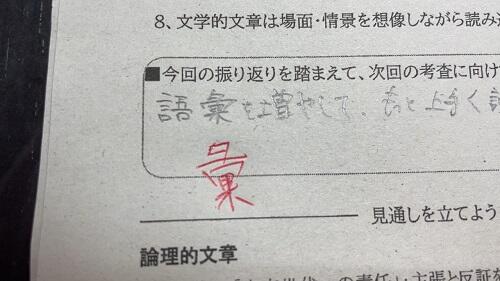 8、文学的文章は場面・情景を想像しながら読み
■今回の振り返りを踏まえて、次回の考査に向け
語彙を増やして、もっと上手く
彙
見通しを立てよう
論理的文章
の責任」主張と反証を